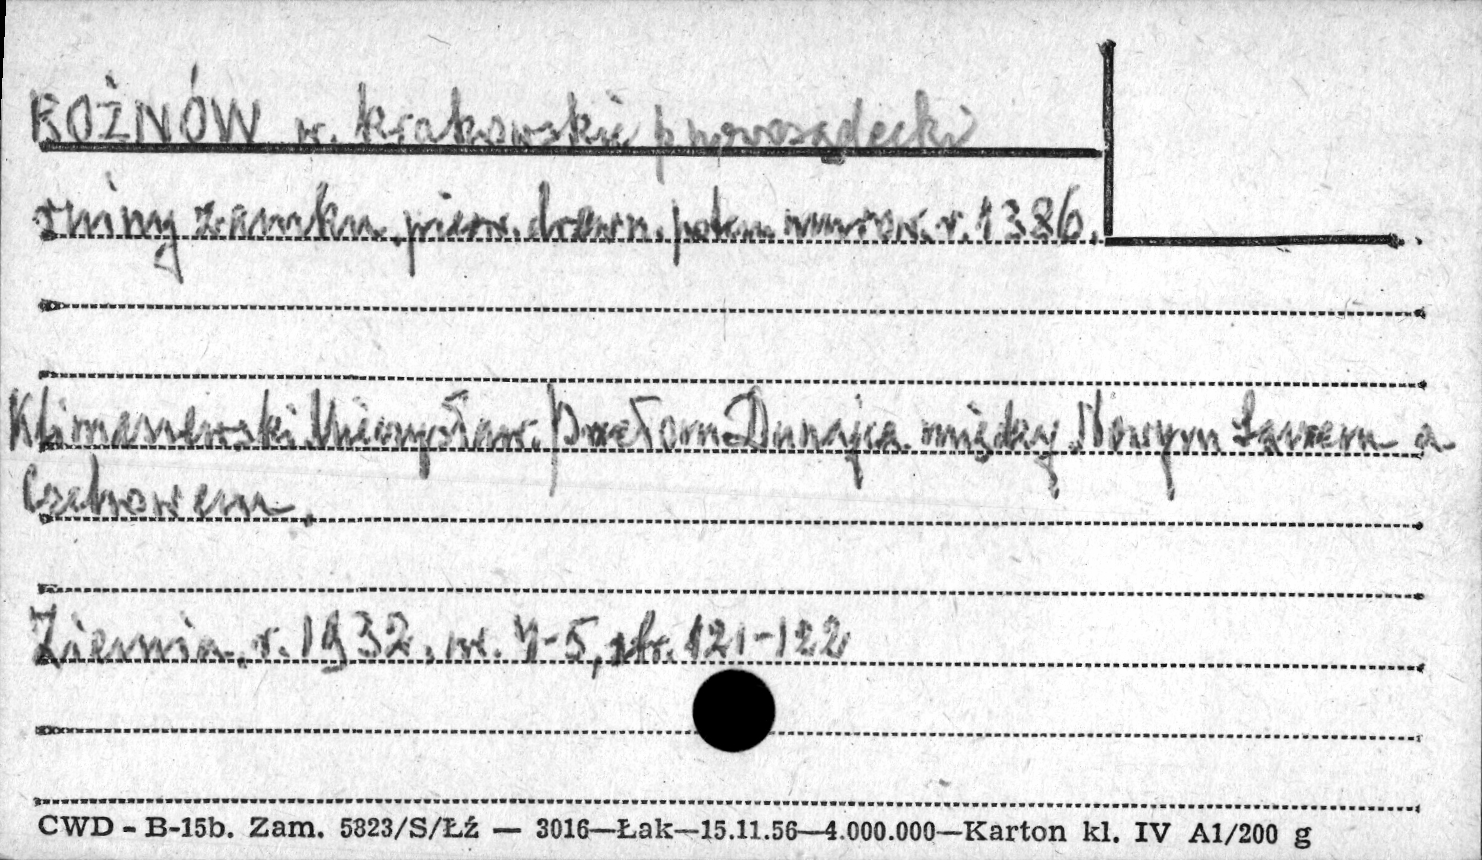 ROŻNÓW w. krakowskie p nowosądecki
ruiny zamku. pierw. drewn. potem murow. r. 1386.
Klimaszewski Mieczysław. Przełom Dunajca między Nowym Sączem a
Czchowem.
Ziemia, r. 1932. nr. 4-5, str. 121-122
CWD - B-15b. Zam. 5823/S/Łź — 3016—Łak—15.11.56—4.000.000—Karton kl. IV A1/200 g